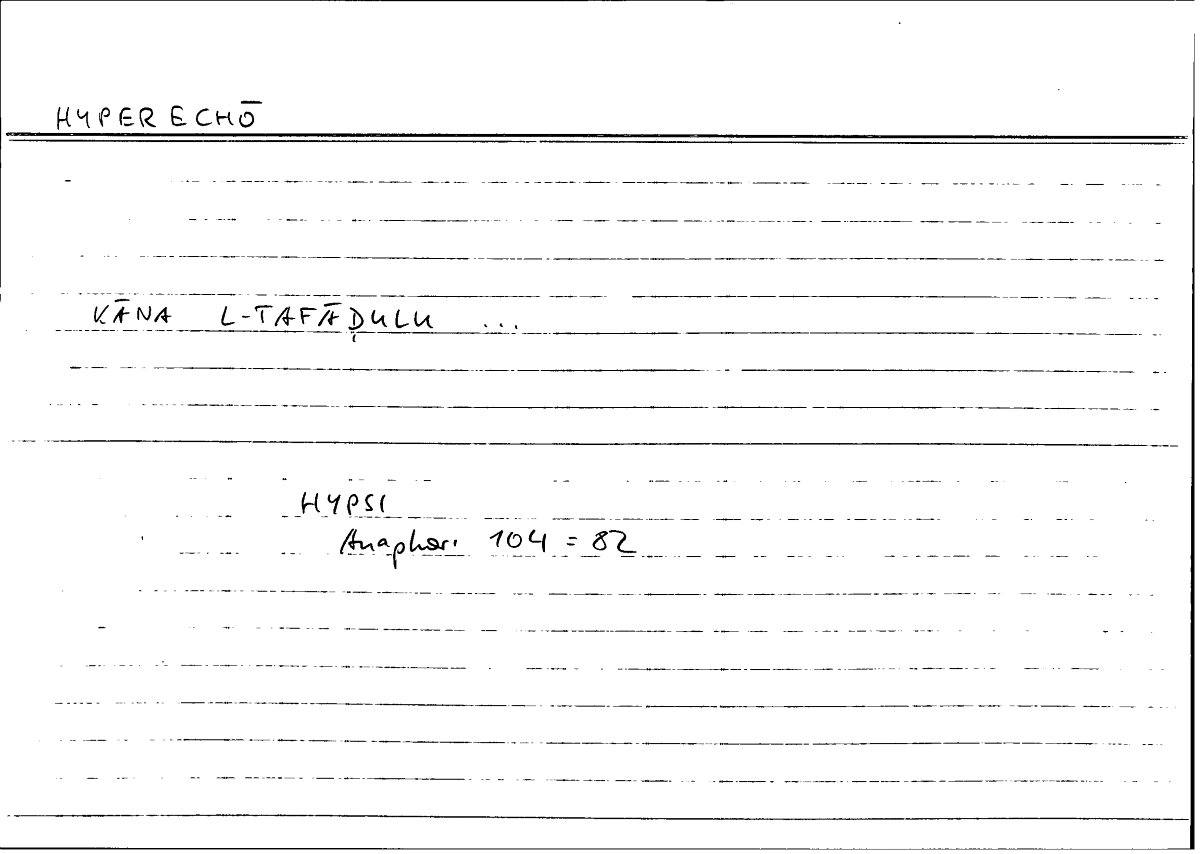 HYPERECHŌ
KĀNA L-TAFĀḌULU ...
HYPSI
Anaphor. 104 = 82